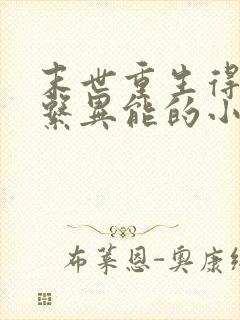 末世重生得
系异能的小
布莱恩-奥康纳